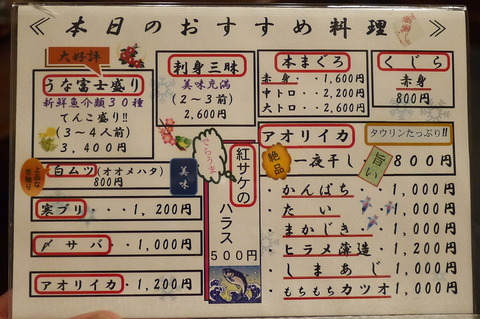 ≪本日のおすすめ料理≫
大好評
うな富士盛り
新鮮魚介類30種
てんこ盛り!!
(3~4人前)
3,400円
刺身三昧
美味充満
(2~3前)
2,600円
本まぐろ
赤身・・1,600円
中トロ・・2,200円
大トロ・・2,600円
くじら
赤身
800円
アオリイカ
タウリンたっぷり!!
絶品
一夜干し
旨い
800円
上品な
白ムツ(オオメハタ)
800円
美味
寒ブリ・・・1,200円
〆サバ・・1,000円
アオリイカ・1,200円
紅サケの
ハラス
500円
・かんぱち・1,000円
・たい・1,000円
・まかじき・1,000円
・ヒラメ薄造・1,200円
・しまあじ・1,000円
・もちもちカツオ1,000円